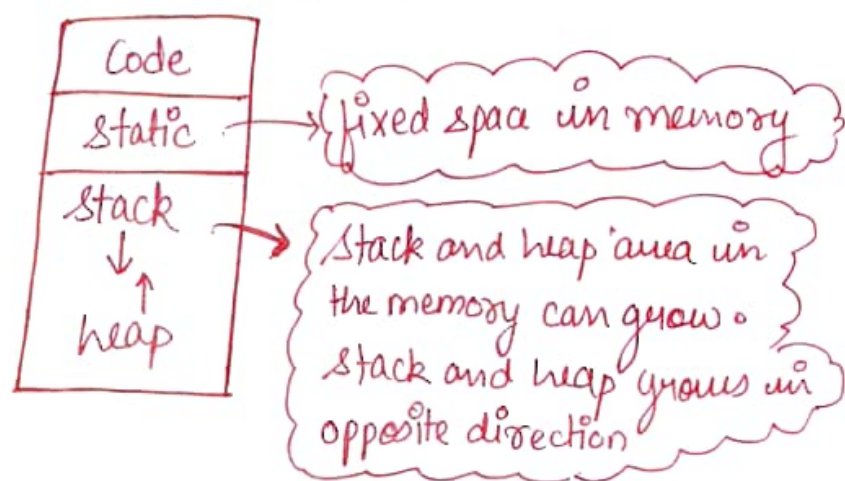 Code
static
fixed space in memory
stack
heap
stack and heap area in
the memory can grow.
stack and heap grows in
opposite direction